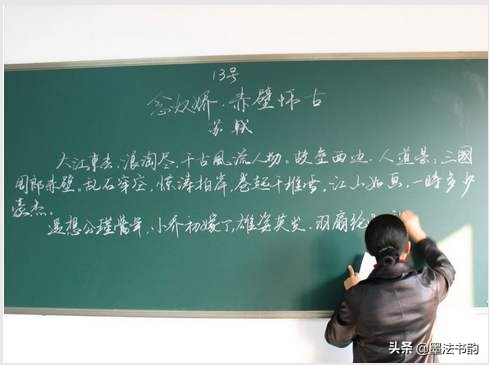 13号
念奴娇·赤壁怀古
苏轼
大江東去,浪淘尽,千古風流人物。故垒西边,人道是,三國
周郎赤壁。乱石穿空,惊涛拍岸,卷起千堆雪,江山如画,一時多少
豪杰。
遥想公瑾當年,小乔初嫁了,雄姿英发。羽扇纶
头条@墨法书韵